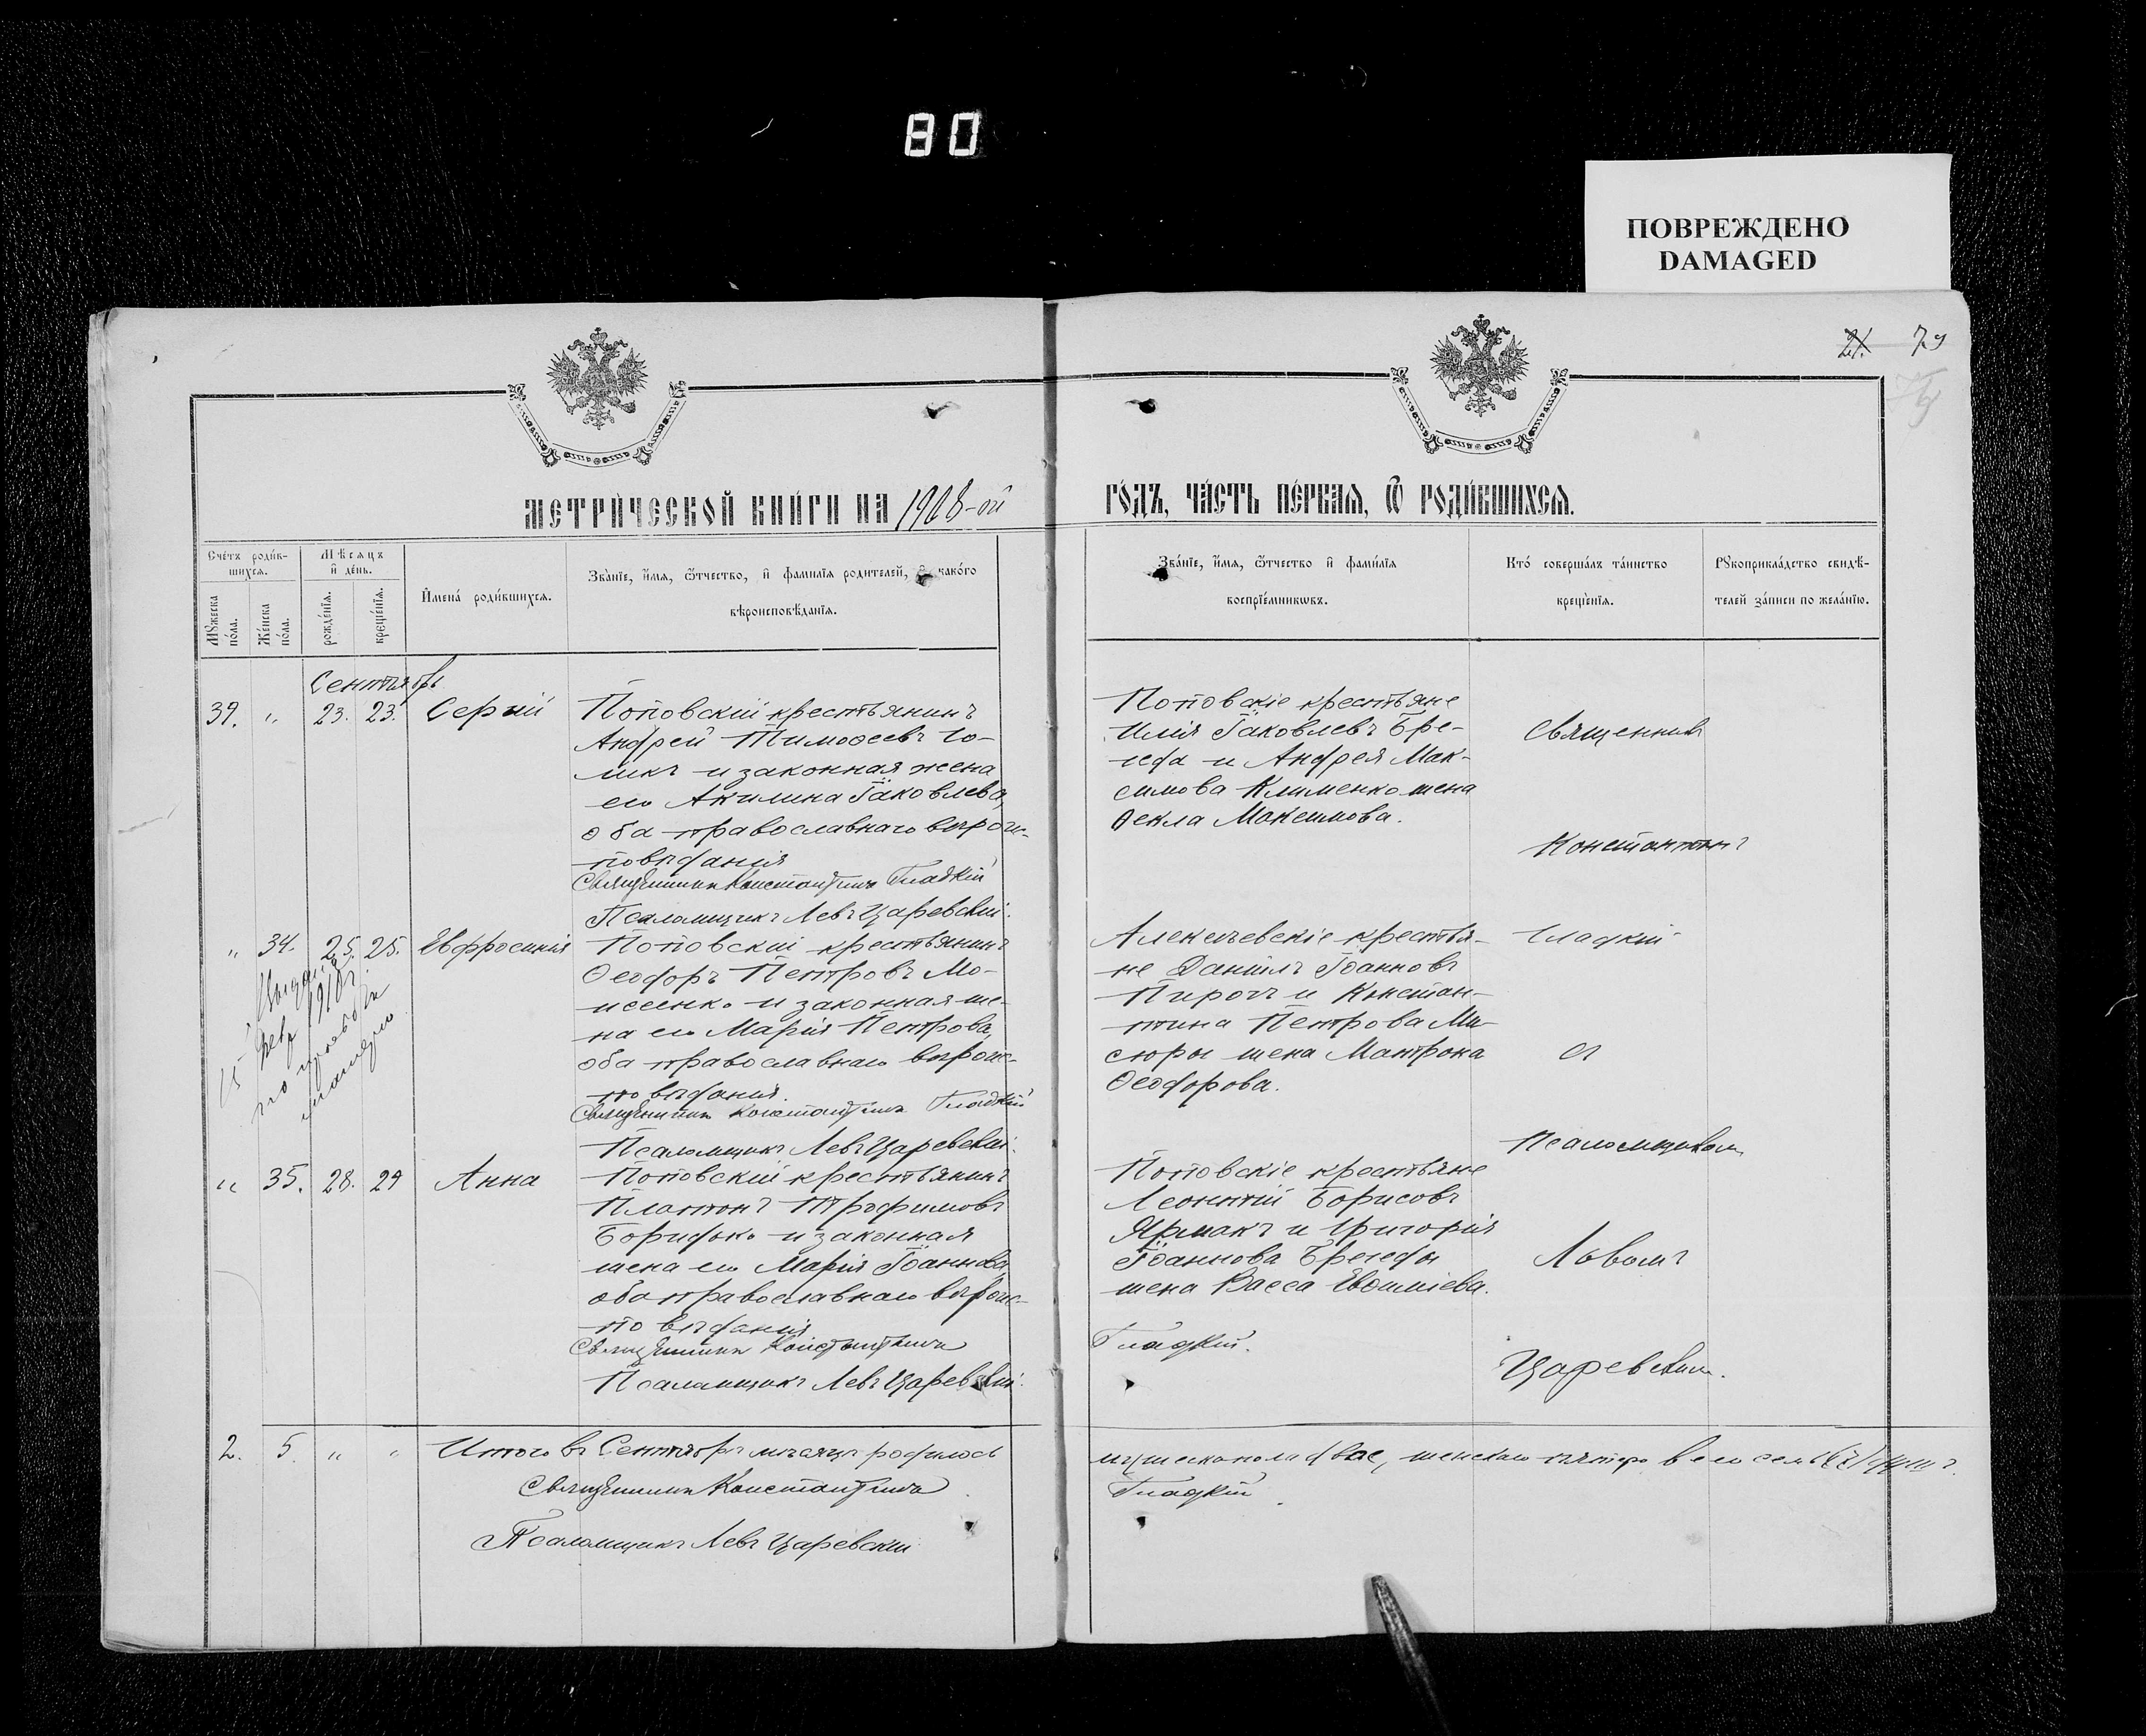 80
ПОВРЕЖДЕНО
DAMAGED
21. 79
МЕТРИ́ЧЕСКОЙ КНИ́ГИ НА 1908-ой
ГО́ДЪ, ЧА́СТЬ ПЕ́РВАЯ, Ѡ РОДИ́ВШИХСЯ.
Сче́тъ роди́в-
шихся.
Мѣ́сяцъ
и҆ де́нь.
Мꙋ́жеска по́ла.
Же́нска по́ла.
рожде́нїя.
креще́нїя.
И҆мена́ роди́вшихся.
Зва́нїе, и҆́мя, ѻ҆́тчество, и҆ фами́лїя родителей, и҆ како́го
вѣроисповѣ́данїя.
Зва́нїе, и҆́мя, ѻ҆́тчество и҆ фами́лїя
воспрїе́мникѡвъ.
Кто̀ соверша́лъ та́инство
креще́нїя.
Рꙋкоприкла́дство свидѣ́-
телей за́писи по жела́нїю.
Сентябрь
39. " 23. 23. Сергій
Поповскій крестьянинъ
Андрей Тимофеевъ Го-
ликъ и законная жена
его Акилина Іаковлева,
оба православнаго вѣроис-
повѣданія
Священникъ Константинъ Гладкій
Псаломщикъ Левъ Царевскій.
Поповскіе крестьяне
Илія Іаковлевъ Бре-
геда и Андрея Мак-
симова Клименко жена
Ѳекла Максимова.
Священникъ
Константинъ
" 34. 25. 25. Евфросинія
Поповскій крестьянинъ
Ѳеодоръ Петровъ Мо-
исеенко и законная же-
на его Марія Петрова,
оба православнаго вѣроис-
повѣданія.
Священникъ Константинъ Гладкій
Псаломщикъ Левъ Царевскій.
Выдана
15 февр 1910 г.
метрику
Алексеевскіе крестья-
не Даніилъ Іоанновъ
Пирогъ и Констан-
тина Петрова Ми-
сюры жена Матрона
Ѳеодорова.
Гладкій
съ
Псаломщикомъ
" 35. 28. 29 Анна
Поповскій крестьянинъ
Платонъ Трофимовъ
Боридько и законная
жена его Марія Іоаннова,
оба православнаго вѣроис-
повѣданія
Священникъ Константинъ
Псаломщикъ Левъ Царевскій.
Поповскіе крестьяне
Леонтій Борисовъ
Ярмакъ и Григорія
Іоаннова Брегеды
жена Васса Евдоміева.
Гладкій.
Львомъ
Царевскимъ.
2. 5. " " Итого въ Сентябрѣ мѣсяцѣ родилось
мужеска пола двое, женскаго пятеро всего семь (7) душъ.
Священникъ Константинъ
Гладкій
Псаломщикъ Левъ Царевскій